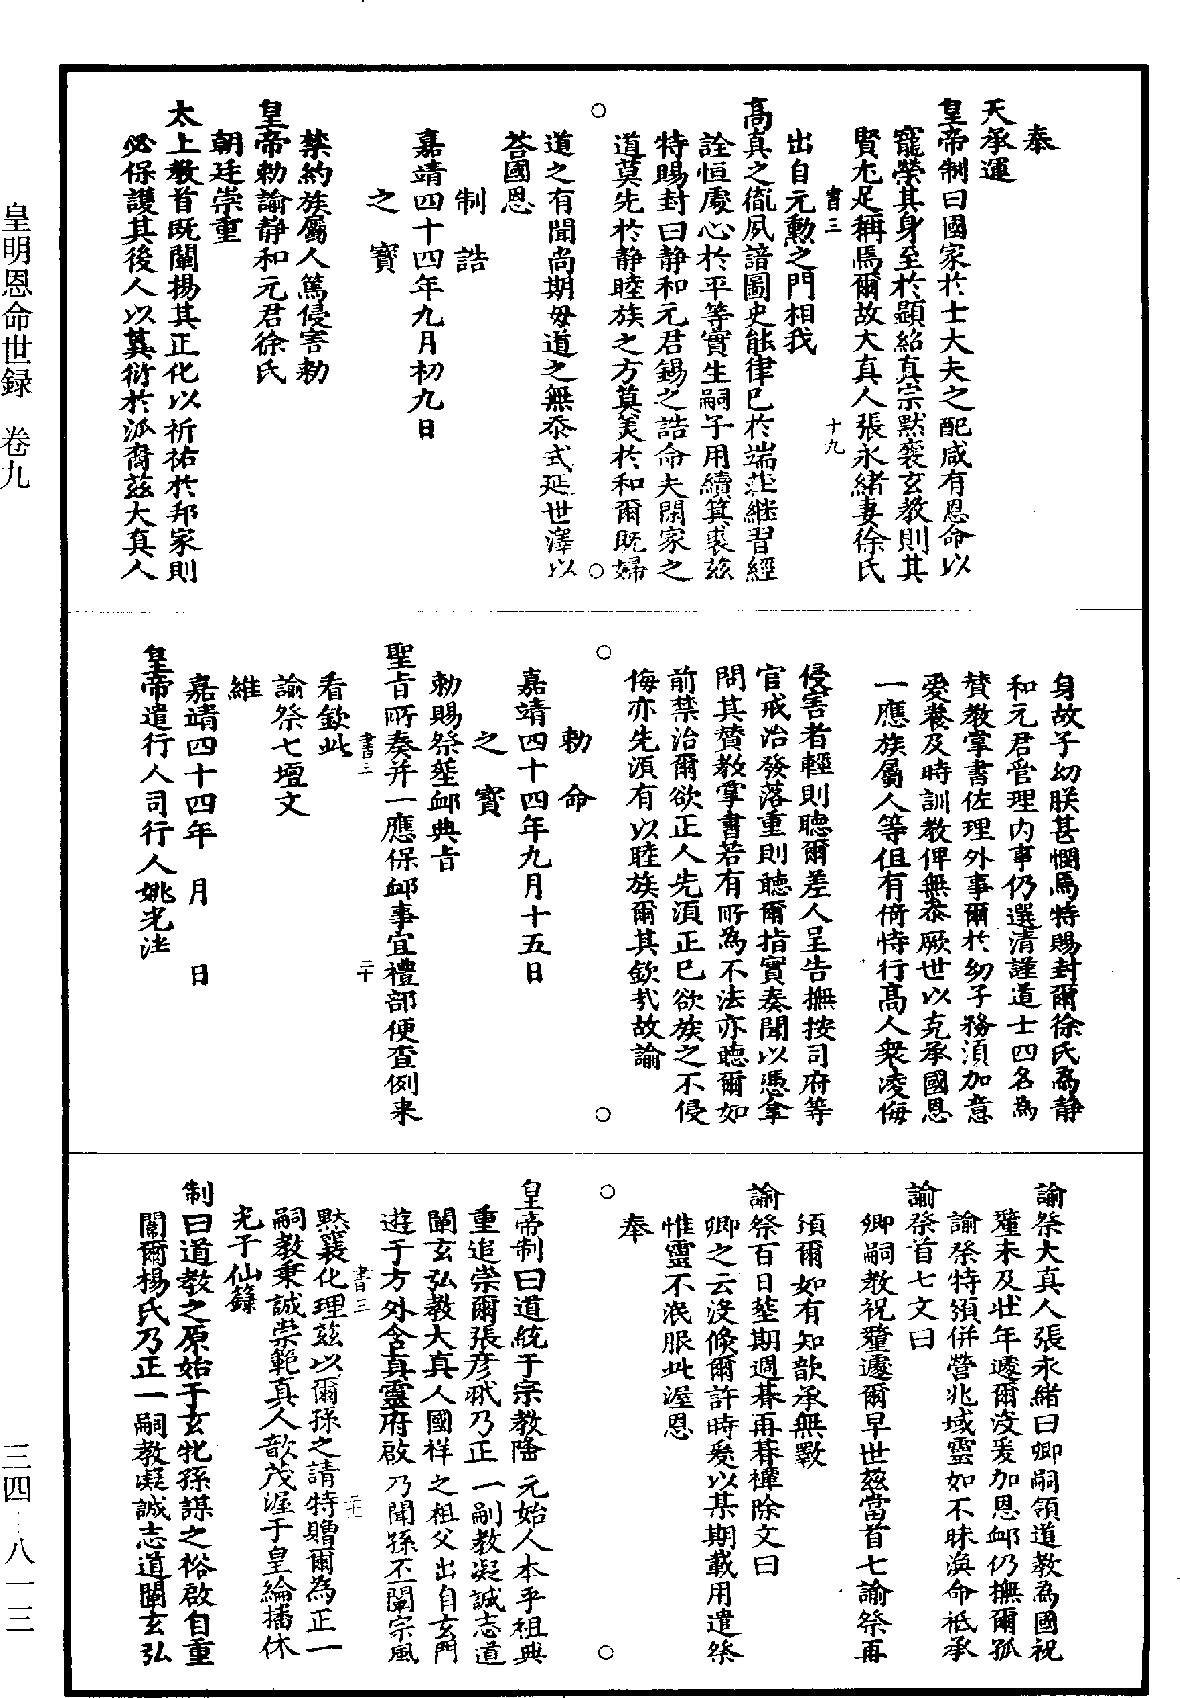 奉
天承運
皇帝制曰國家於士大夫之配咸有恩命以
寵榮其身至於顯紹真宗默裹玄教則其
賢尤足稱焉爾故大真人張永緒妻徐氏
書三
十九
出自元勳之門相我
高真之胤夙諳圖史能律已於端莊継習經
詮恒處心於平等實生嗣子用續箕裘兹
特賜封曰静和元君錫之誥命夫閑家之
道莫先於静睦族之方莫美於和爾既婦
道之有聞尚期毋道之無忝式延世澤以
荅國恩
制誥
嘉靖四十四年九月初九日
之寶
禁約族屬人篤侵害勅
皇帝勅諭静和元君徐氏
朝廷崇重
太上教首既闡揚其正化以祈祐於邦家則
必保護其後人以冀衍於㳒裔兹大真人
身故子幼朕甚憫焉特賜封爾徐氏為静
和元君管理内事仍選清謹道士四名為
賛教掌書佐理外事爾於幼子務湏加意
愛養及時訓教俾無忝厥世以克承國恩
一應族屬人等但有倚恃行高人衆凌侮
侵害者輕則聽爾差人呈告撫按司府等
官戒治發落重則聽爾指實奏聞以憑拿
問其賛教掌書若有所為不法亦聽爾如
前禁治爾欲正人先湏正已欲族之不侵
侮亦先湏有以睦族爾其欽㢤故諭
勅命
嘉靖四十四年九月十五日
之寶
勅賜祭塟䘏典㫖
聖㫖所奏并一應保䘏事宜禮部便查例来
書三
二十
看欽此
諭祭七壇文
維
嘉靖四十四年 月 日
皇帝遣行人司行人姚光泮
諭祭大真人張永緒曰卿嗣領道教為國祝
釐未及壮年遽爾淪爰加恩䘏仍撫爾孤
諭祭特頒併營兆域靈如不昧渙命祗承
諭祭首七文曰
卿嗣教祝釐遽爾早世兹當首七諭祭再
頒爾如有知歆承無斁
諭祭百日塟期週朞再朞禫除文曰
卿之云没倐爾許時爰以某期載用遣祭
惟靈不泯服此渥恩
奉
皇帝制曰道統于宗教隆元始人本乎祖典
重追崇爾張彦𩓪乃正一嗣教凝誠志道
闡玄弘教大真人國祥之祖父出自玄門
遊于方外含真靈府啟乃聞孫丕闡宗風
書三
二十一
黙襄化理兹以爾孫之請特贈爾為正一
嗣教秉誠崇範真人歆茂渥于皇綸播休
光于仙籙
制曰道教之原始于玄牝孫謀之裕啟自重
闈爾楊氏乃正一嗣教凝誠志道闡玄弘
皇明恩命世録 卷九
三四—八一三